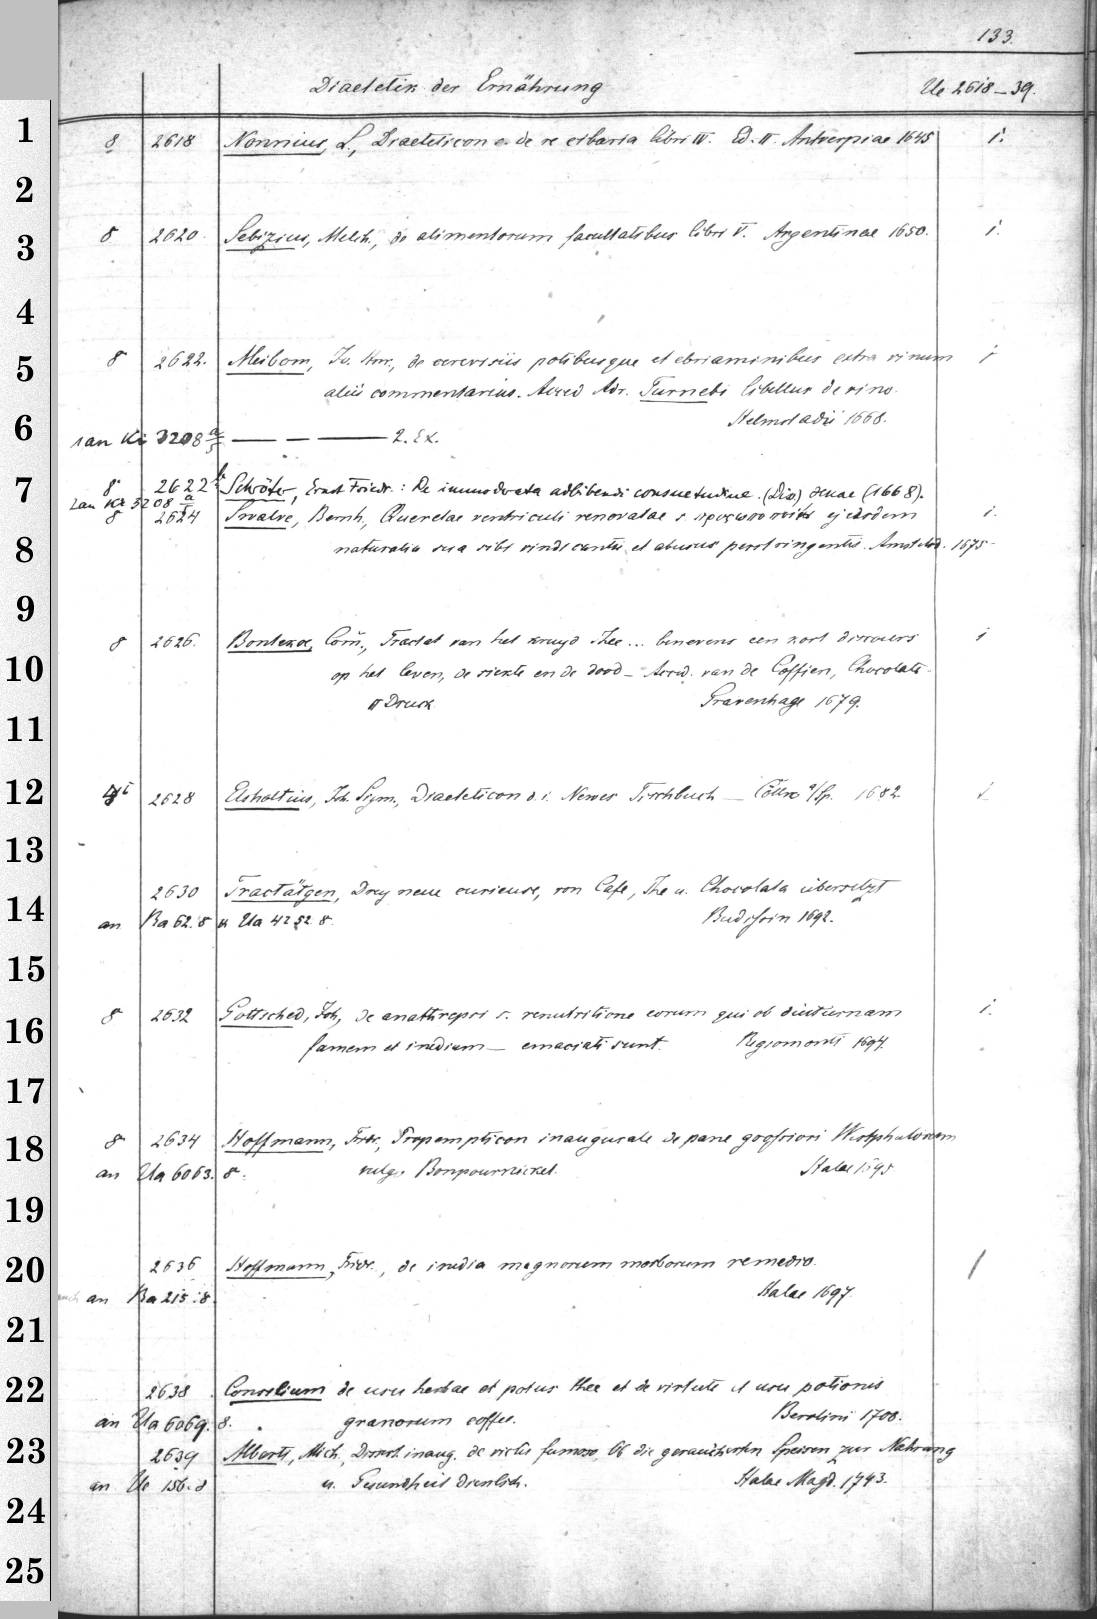 133.
Diaetetik der Ernährung Ue 2618-39.
1 8 2618 Nonnius, L., Diaeteticon s. de re cibaria libri IV. Ed. II. Antverpiae 1645 i.
2
3 8 2620. Sebizius, Melch., de alimentorum facultatibus libri V. Argentinae 1650. i.
4
5 8 2622. Meibom, Jo. Hnr., de cerevisiis potibusque et ebriaminibus extra vinum i
aliis commentarius. Acced Adr. Turnebi libellus de vino.
Helmstadii 1668.
6 1 an Ki 3208 a/5 — — — 2. Ex.
7 8 2622 b Schröter, Ernst Friedr.: De immoderata adbibendi consuetudine. (Diss) Jenae (1668).
2 an Ki 3208 a
8 2624 Swalve, Bernh., Querelae ventriculi renovatae s. ejusdem i.
8 naturalia sua sibi vindicantis et abusus perstringentis. Amstelod. 1675-
9
10 8 2626. Bontekoe, Corn., Tractat van het kruyd Thee... benevens een kort discours i
op het leven, de siekte en de dood - Acced. van de Coffien, Chocolate.
II Druck Gravenhage 1679.
11
12 2628 Elsholtius, Joh. Sigm., Diaeteticon d. i. Newes Tischbuch — Cölln a/Sp. 1682 i
13
14 2630 Tractätgen, Drey neue curieuse, von Cafe, The u. Chocolata übersetzt
an Ba 62. 8 u Ua 4252. 8. Budissin 1692.
15
16 8 2632 Gottsched, Joh., de anathrepsi s. renutritione eorum qui ob diuturnam i.
famem et inediam — emaciati sunt. Regiomonti 1694.
17
18 8 2634 Hoffmann, Frdr., Propempticon inaugurale de pane grossiori Westphalorum
an Ua 6063. 8. vulgo Bonpournickel. Halae 1695
19
20 2636 Hoffmann, Fridr., de inedia magnorum morborum remedio.
an Ba 215. 8. Halae 1697
21
22 2638 Consilium de usu herbae et potus thee et de virtute et usu potionis
an Ua 6069. 8. granorum coffee. Berolini 1708.
23 2639 Alberti, Mich., Dissert. inaug. de victu fumoso, Ob die geraucherten Speisen zur Nahrung
an Ue 156. 8 u. Gesundheit dienlich. Halae Magd. 1743.
24
25